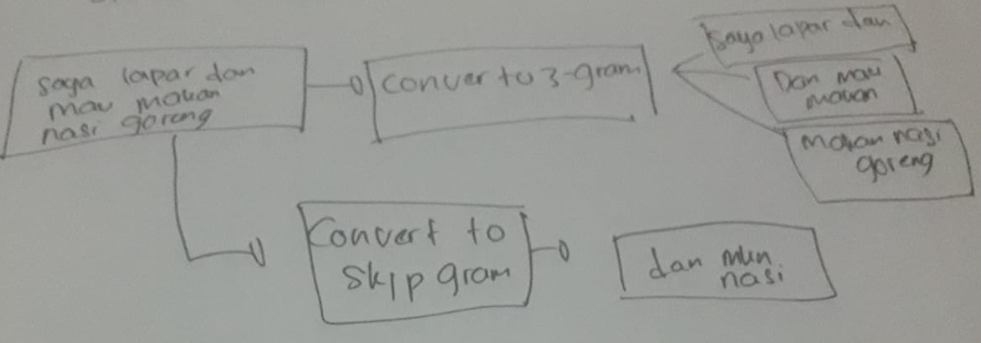 saya lapar dan
mau makan
nasi goreng
Conver to 3-gram
saya lapar dan
Dan mau
makan
makan nasi
goreng
Convert to
skip gram
dan
nasi